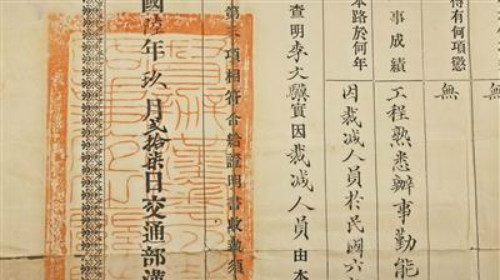 無
得有何項懲
無
事成績
工程熟悉辦事勤能
本路於何年
因裁減人員於民國六
查明李文驥實因裁減人員由本
項相符合給證明書收執須
國陸年玖月貳拾柒日交通部漢